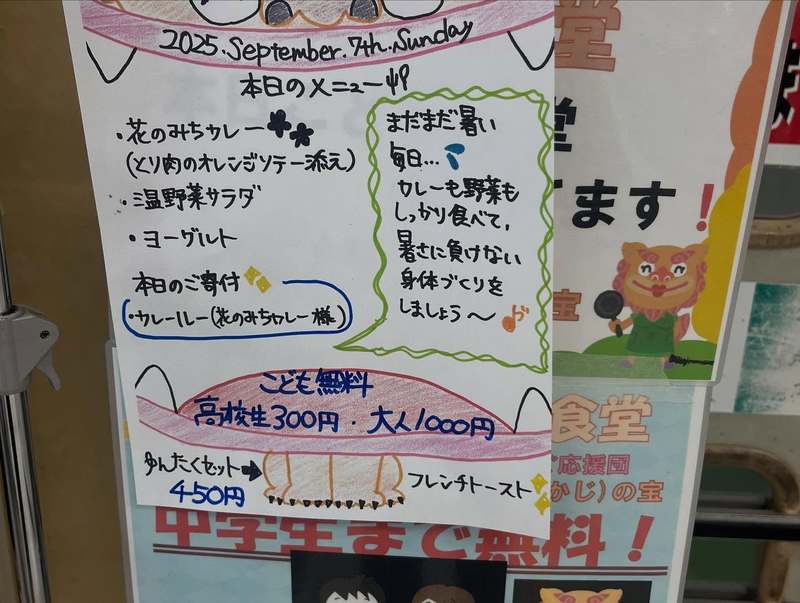 2025.September.7th.Sunday
本日のメニュー
・花のみちカレー
(とり肉のオレンジソテー添え)
・温野菜サラダ
・ヨーグルト
本日のご寄付
・カレールー(花のみちカレー様)
まだまだ暑い
毎日…
カレーも野菜も
しっかり食べて、
暑さに負けない
身体づくりを
しましょう〜
こども無料
高校生300円・大人1000円
ゆんたくセット→
450円
フレンチトースト
堂
堂
てます!
宝
食堂
応援団
かじ)の宝
中学生まで無料!